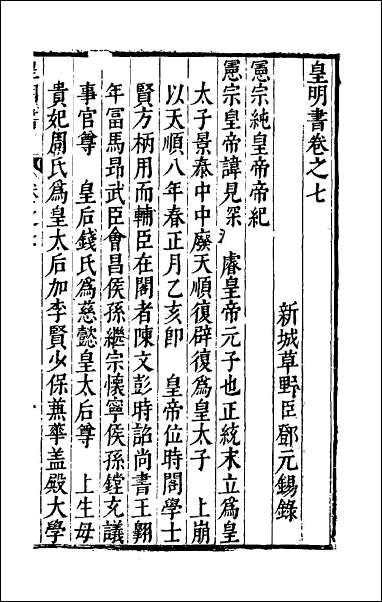 皇明書卷之七
新城草野臣鄧元錫錄
憲宗純皇帝帝紀
憲宗皇帝諱見深 睿皇帝元子也正統末立爲皇
太子景泰中中廢天順復辟復爲皇太子 上崩
以天順八年春正月乙亥卽 皇帝位時閣學士
賢方柄用而輔臣在閣者陳文彭時詔尚書王翱
年冨馬昂武臣會昌侯孫繼宗懷寧侯孫鏜充議
事官尊 皇后錢氏爲慈懿皇太后尊 上生母
貴妃周氏爲皇太后加李賢少保兼華盖殿大學